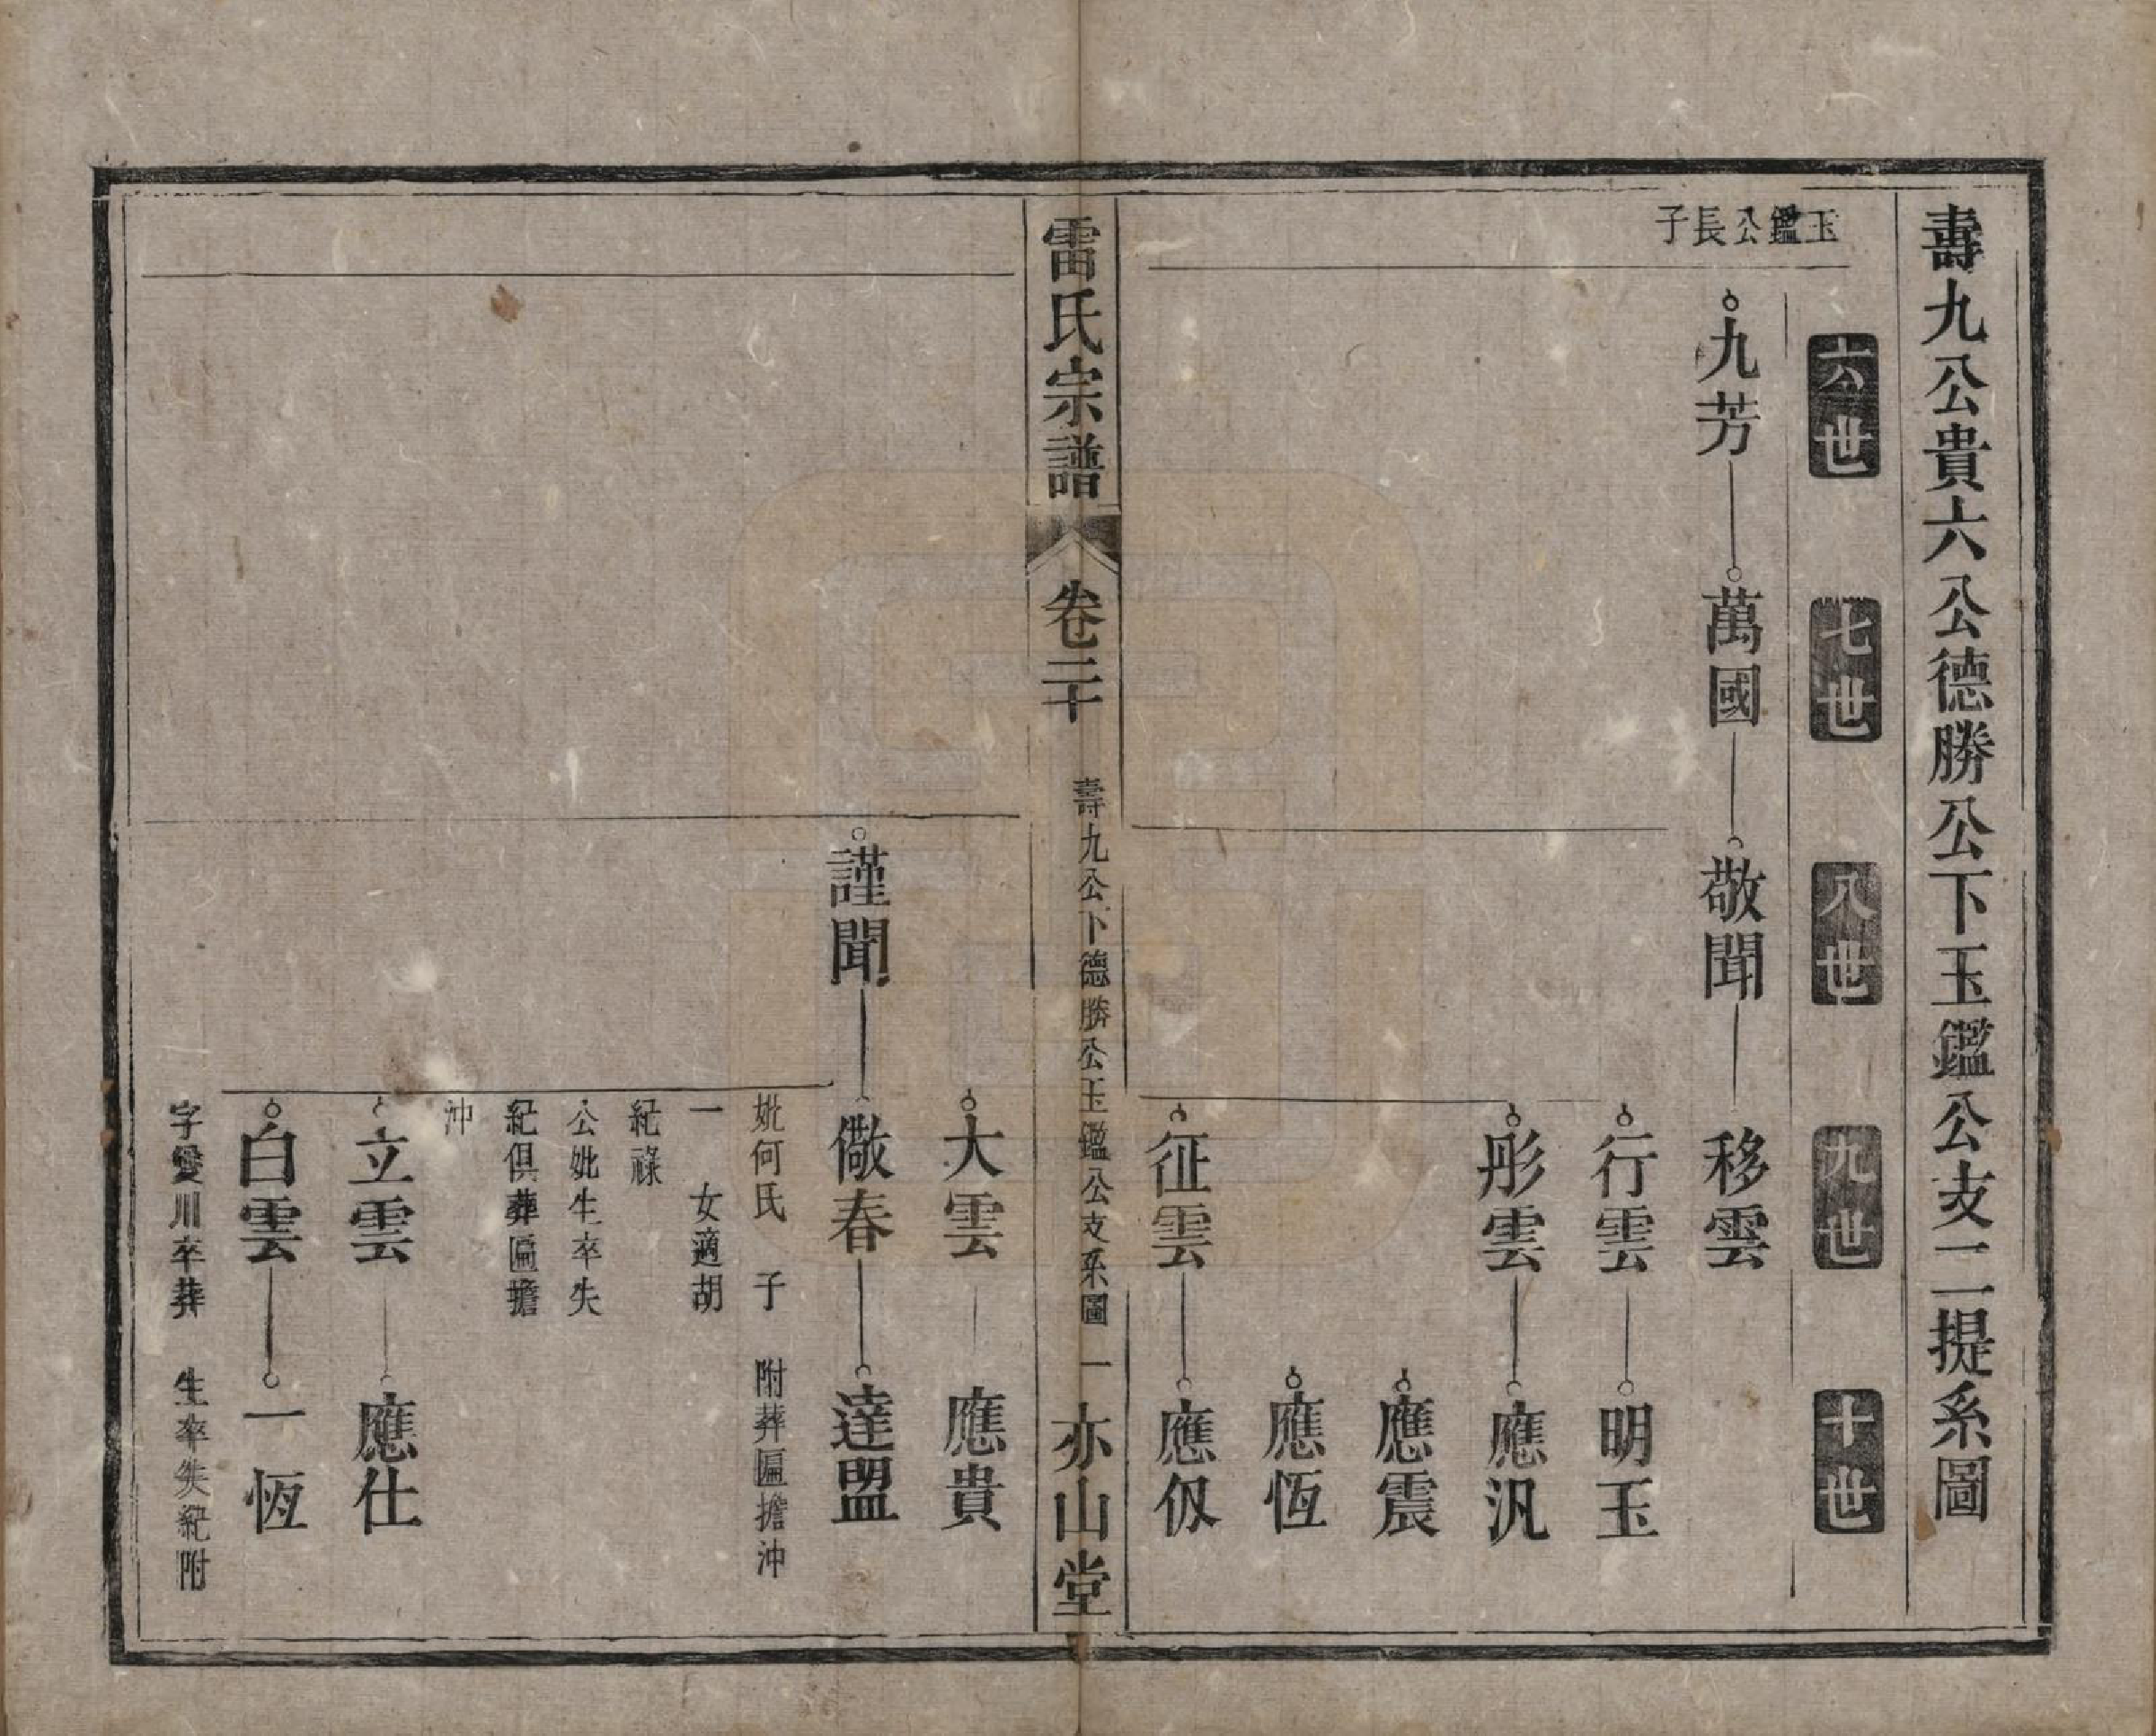 壽九公貴六公德勝公下玉鑑公支二提系圖
六世
七世
八世
九世
十世
玉鑑公長子
九芳
萬國
敬聞
移雲
行雲
明玉
彤雲
應汎
應震
應恆
征雲
應伋
雷氏宗譜
卷二十
壽九公下德勝公玉鑑公支系圖
一
亦山堂
大雲
應貴
謹聞
儆春
達盟
妣何氏 子
一 女適胡
紀祿
公妣生卒失
紀俱葬匾擔
沖
附葬匾擔沖
立雲
應仕
白雲
一恆
字愛川卒葬
生卒失紀附